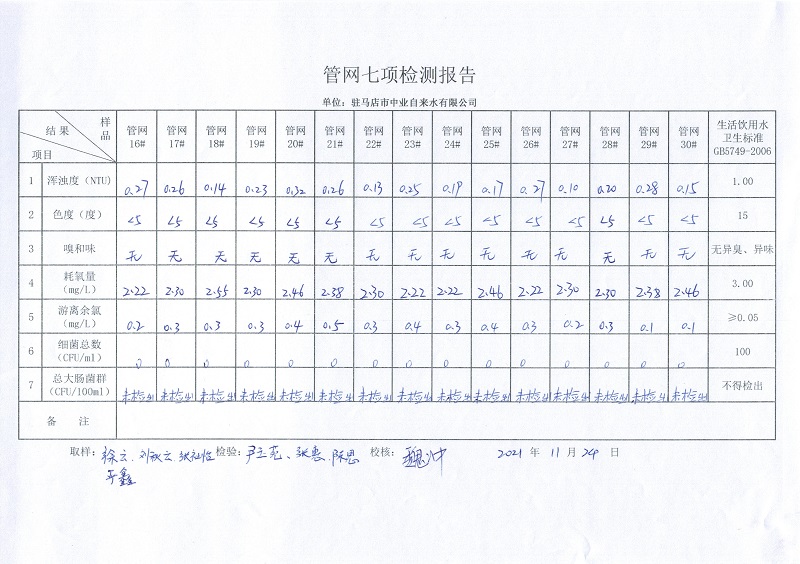 管网七项检测报告
单位：驻马店市中业自来水有限公司
结果 样品 项目 管网16# 管网17# 管网18# 管网19# 管网20# 管网21# 管网22# 管网23# 管网24# 管网25# 管网26# 管网27# 管网28# 管网29# 管网30# 生活饮用水卫生标准GB5749-2006
1 浑浊度（NTU） 0.27 0.26 0.14 0.23 0.32 0.26 0.13 0.25 0.19 0.17 0.27 0.10 0.20 0.28 0.15 1.00
2 色度（度） <5 <5 <5 <5 <5 <5 <5 <5 <5 <5 <5 <5 <5 <5 <5 15
3 嗅和味 无 无 无 无 无 无 无 无 无 无 无 无 无 无 无 无异臭、异味
4 耗氧量（mg/L） 2.22 2.30 2.55 2.30 2.46 2.38 2.30 2.22 2.22 2.46 2.22 2.30 2.30 2.38 2.46 3.00
5 游离余氯（mg/L） 0.2 0.3 0.3 0.3 0.4 0.5 0.3 0.4 0.3 0.4 0.3 0.2 0.3 0.1 0.1 ≥0.05
6 细菌总数（CFU/ml） 0 0 0 0 0 0 0 0 0 0 0 0 0 0 0 100
7 总大肠菌群（CFU/100ml） 未检出 未检出 未检出 未检出 未检出 未检出 未检出 未检出 未检出 未检出 未检出 未检出 未检出 未检出 未检出 不得检出
备 注
取样： 徐云、检验： 校核： 2021 年 11 月 24 日